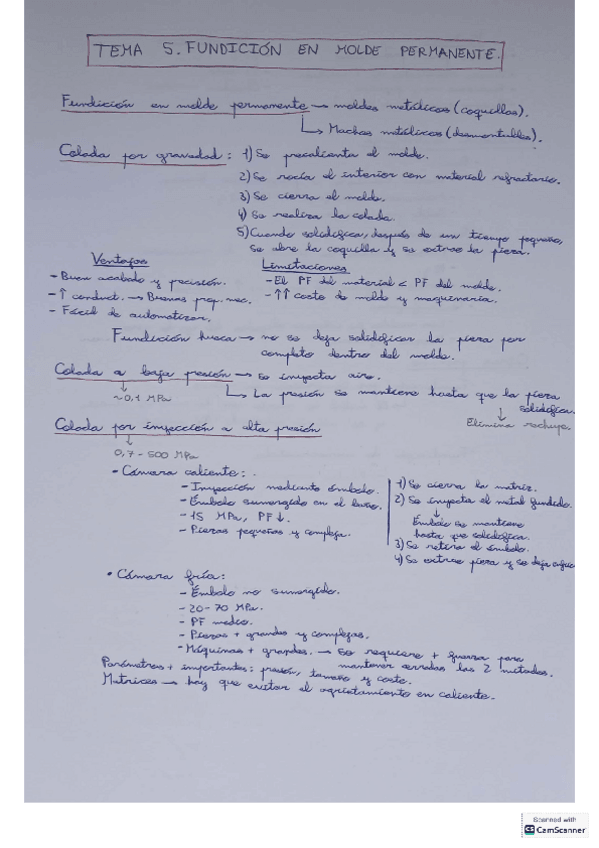 TEMA 5. FUNDICIÓN EN MOLDE PERMANENTE.
Fundición en molde permanente → moldes metálicos (coquillas).
↳ Machos metálicos (desmontables).
Colada por gravedad: 1) Se precalienta el molde.
2) Se rocía el interior con material refractario.
3) Se cierra el molde.
4) Se realiza la colada.
5) Cuando solidifica, después de un tiempo pequeño,
se abre la coquilla y se extrae la pieza.
Ventajas
- Buen acabado y precisión.
- ↑ conduct. → Buenas prop. mec.
- Fácil de automatizar.
Limitaciones
- El PF del material < PF del molde.
- ↑↑ coste de molde y maquinaria.
Fundición hueca → no se deja solidificar la pieza por
completo dentro del molde.
Colada a baja presión → se inyecta aire.
↓
~0,1 MPa
↳ La presión se mantiene hasta que la pieza
solidifica.
↓
Elimina rechupe.
Colada por inyección a alta presión
↓
0,7 - 500 MPa
• Cámara caliente:
- Inyección mediante émbolo.
- Émbolo sumergido en el
- 15 MPa, PF ↓.
- Piezas pequeñas y compleja.
1) Se cierra la matriz.
2) Se inyecta el metal fundido.
↓
Émbolo se mantiene
hasta que solidifica.
3) Se retira el émbolo.
4) Se extrae pieza y se deja
• Cámara fría:
- Émbolo no sumergido.
- 20-70 MPa.
- PF medio.
- Piezas + grandes y complejas.
- Máquinas + grandes. → Se requiere + fuerza para
mantener cerradas las 2 mitades.
Parámetros + importantes: presión, tamaño y coste.
Matrices → hay que evitar el agrietamiento en caliente.
Scanned with
CS CamScanner